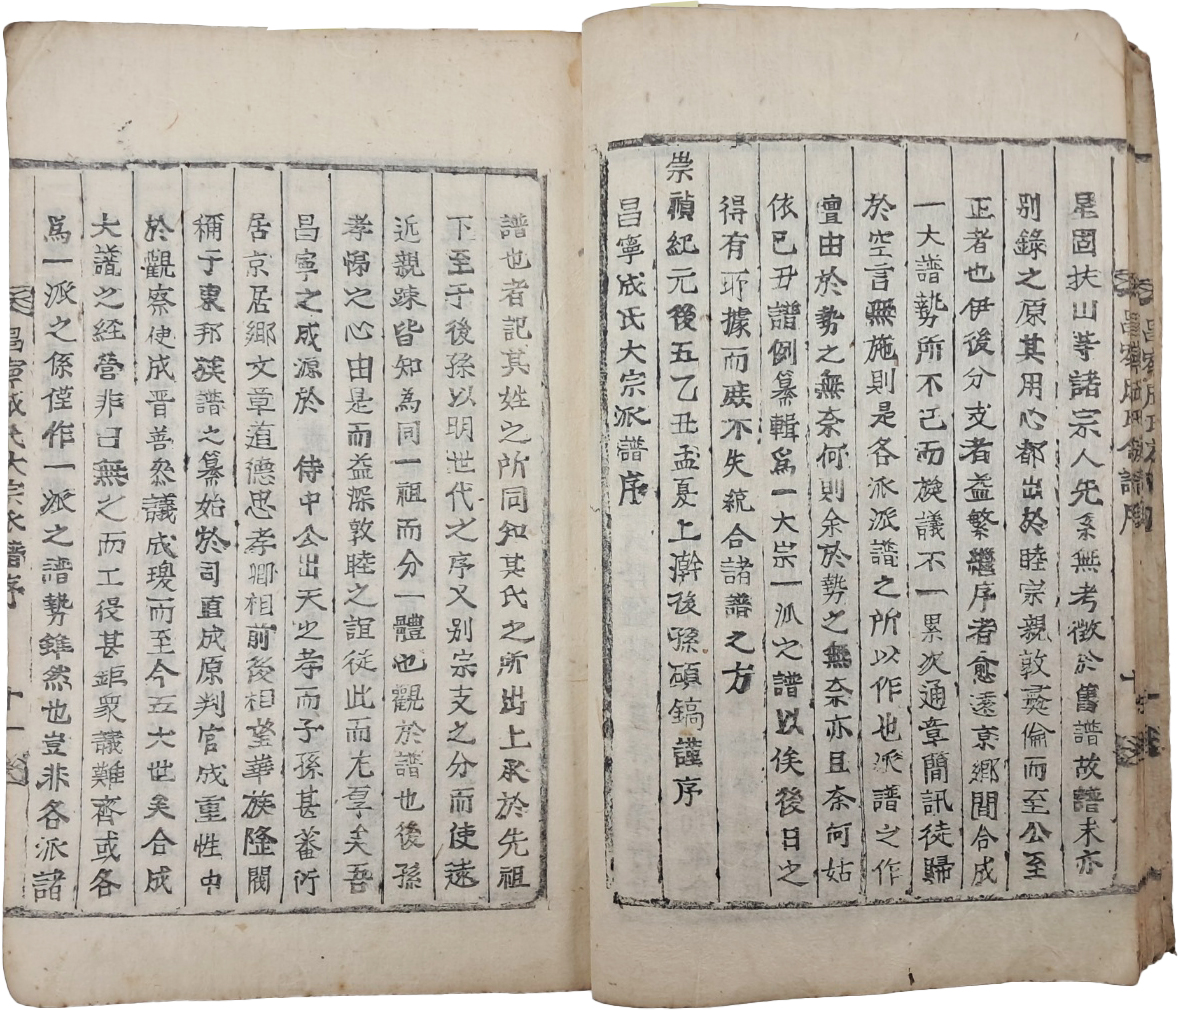 星固扶山等諸宗人先系無考徵於舊譜故譜末亦
別錄之原其用心都出於睦宗親敦彛倫而至公至
正者也伊後分支者益繁繼序者愈遠京鄉間合成
一大譜勢所不已而族議不一累次通章簡訊徒歸
於空言無施則是各派派譜之所以作也派譜之作
亶由於勢之無奈何則余於勢之無奈亦且奈何姑
依己丑譜例纂輯爲一大宗一派之譜以俟後日之
得有所據而庶不失統合諸譜之方
崇禎紀元後五乙丑孟夏上澣後孫碩鎬謹序
昌寧成氏大宗派譜序
譜也者記其姓之所同知其氏之所出上承於先祖
下至于後孫以明世代之序又別宗支之分而使遠
近親踈皆知為同一祖而分一體也觀於譜也後孫
孝悌之心由是而益深敦睦之誼從此而尤享矣吾
昌寧之成源於 侍中公出天之孝而子孫甚蕃所
居京居鄉文章道德忠孝卿相前後相望華族隆閥
稱于東邦族譜之纂始於司直成原判官成重性中
於觀察使成晋善叅議成瓊而至今五六世矣合成
大譜之經營非曰無之而工役甚鉅衆議難齊或各
爲一派之係僅作一派之譜勢雖然也豈非各派諸
昌寧成氏大宗派譜序 十一